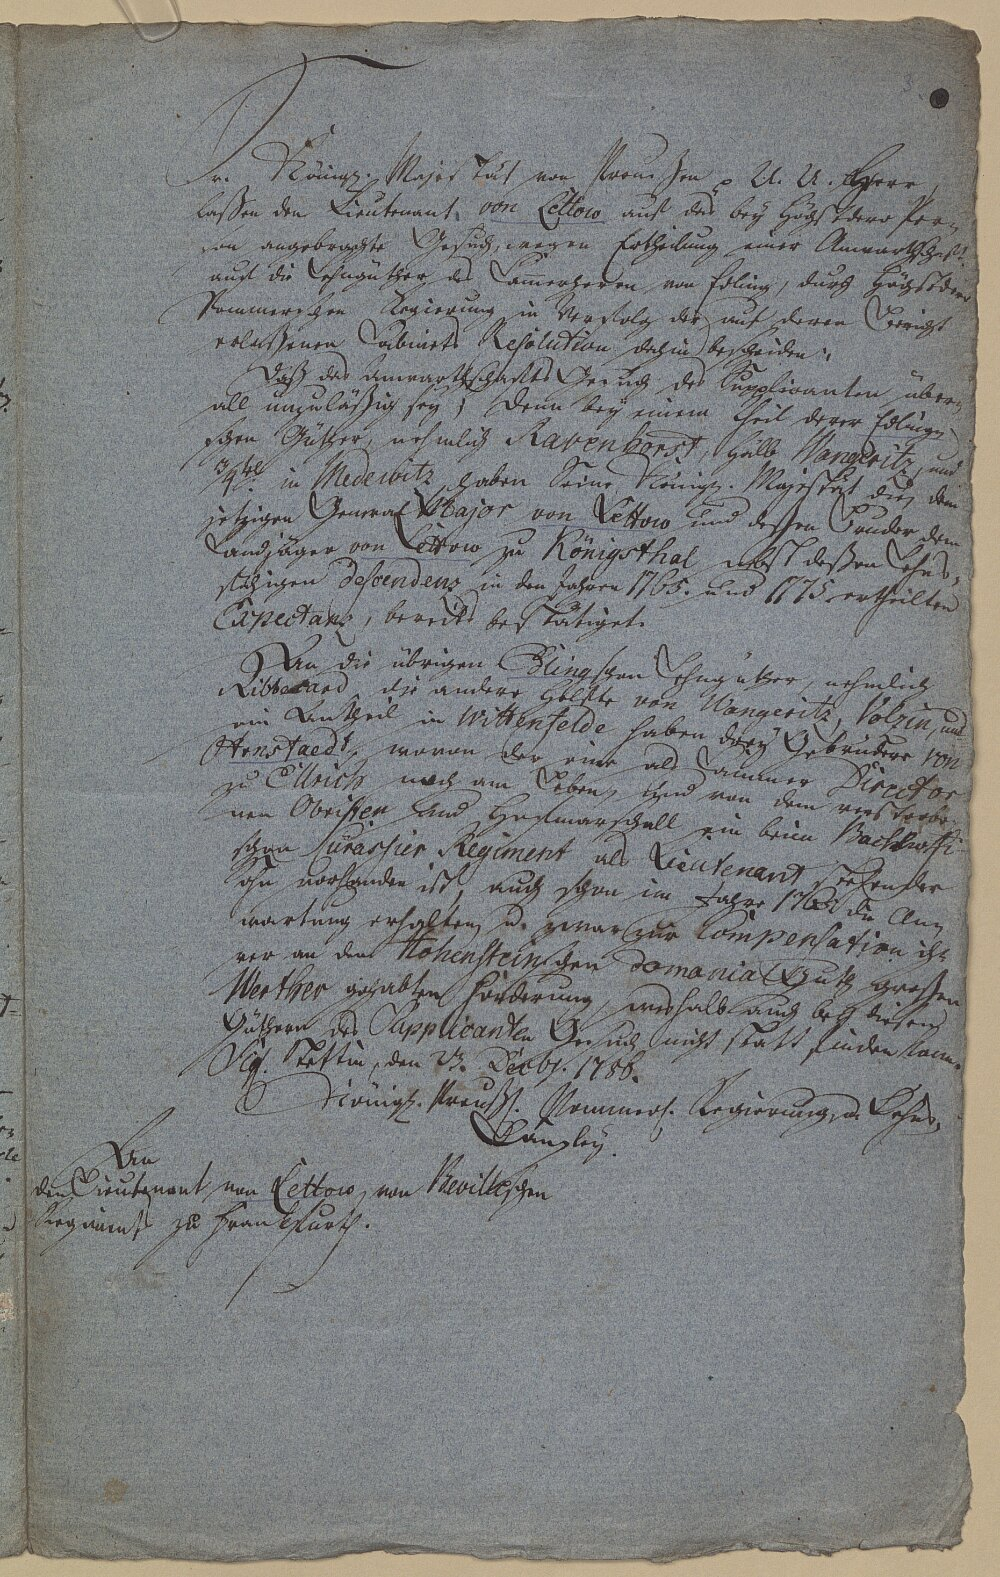 3
Sr. Königl. Majestät von Preußen p U. A. Herr,
lassen den Lieutenant von Lettow auf das bey Höchstdero Per-
son angebrachte Gesuch, wegen Ertheilung einer Anwartschaft
auf die Lehngüther des Cammerherrn von Edling, durch Höchstdero
Pommerschen Regierung in Verfolg der auf deren Bericht
erlaßenen Cabinets Resolution dahin bescheiden:
Daß das Anwartschafts Gesuch des Supplicanten über-
all unzuläßig sey; Denn bey einem Theil derer Edling-
schen Güther, nehmlich Ravenhorst, halb Wangeritz, und
3/4tel in Medewitz haben Seine Königl. Majestät die dem
jetzigen General Major von Lettow und dessen Bruder dem
Landjäger von Lettow zu Königsthal nebst deßen Lehns-
fähigen Descendenz in den Jahren 1765. und 1775 ertheilten
Expectanz, bereits bestätiget.
An die übrigen Edlingschen Lehngüther, nehmlich
Ribbecard, die andere Helfte von Wangeritz, Volzin, und
ein Antheil in Wittenfelde haben drey Gebrüdere von
Arnstaedt, wovon der eine als Cammer Director
zu Ellrich noch am Leben, und von dem verstorbe-
nen Obristen und Hofmarschall ein beim Backhoffi-
schen Cürassier Regiment als Lieutenant stehender
Sohn vorhanden ist, auch schon im Jahre 1763 die An-
wartung erhalten, u. zwar zur Compensation ih-
rer an den Hohensteinschen Domanial Guth großen
Werther gehabten Forderung, weshalb auch bey diesen
Güthern des Supplicanten Gesuch nicht statt finden kann.
Sig. Stettin, den 23. Decbr. 1788.
Königl. Preußl. Pommers. Regierung, u. Lehns-
Canzley.
An
den Lieutenant von Lettow, von Bevilleschen
Regiments zu Frankfurth.